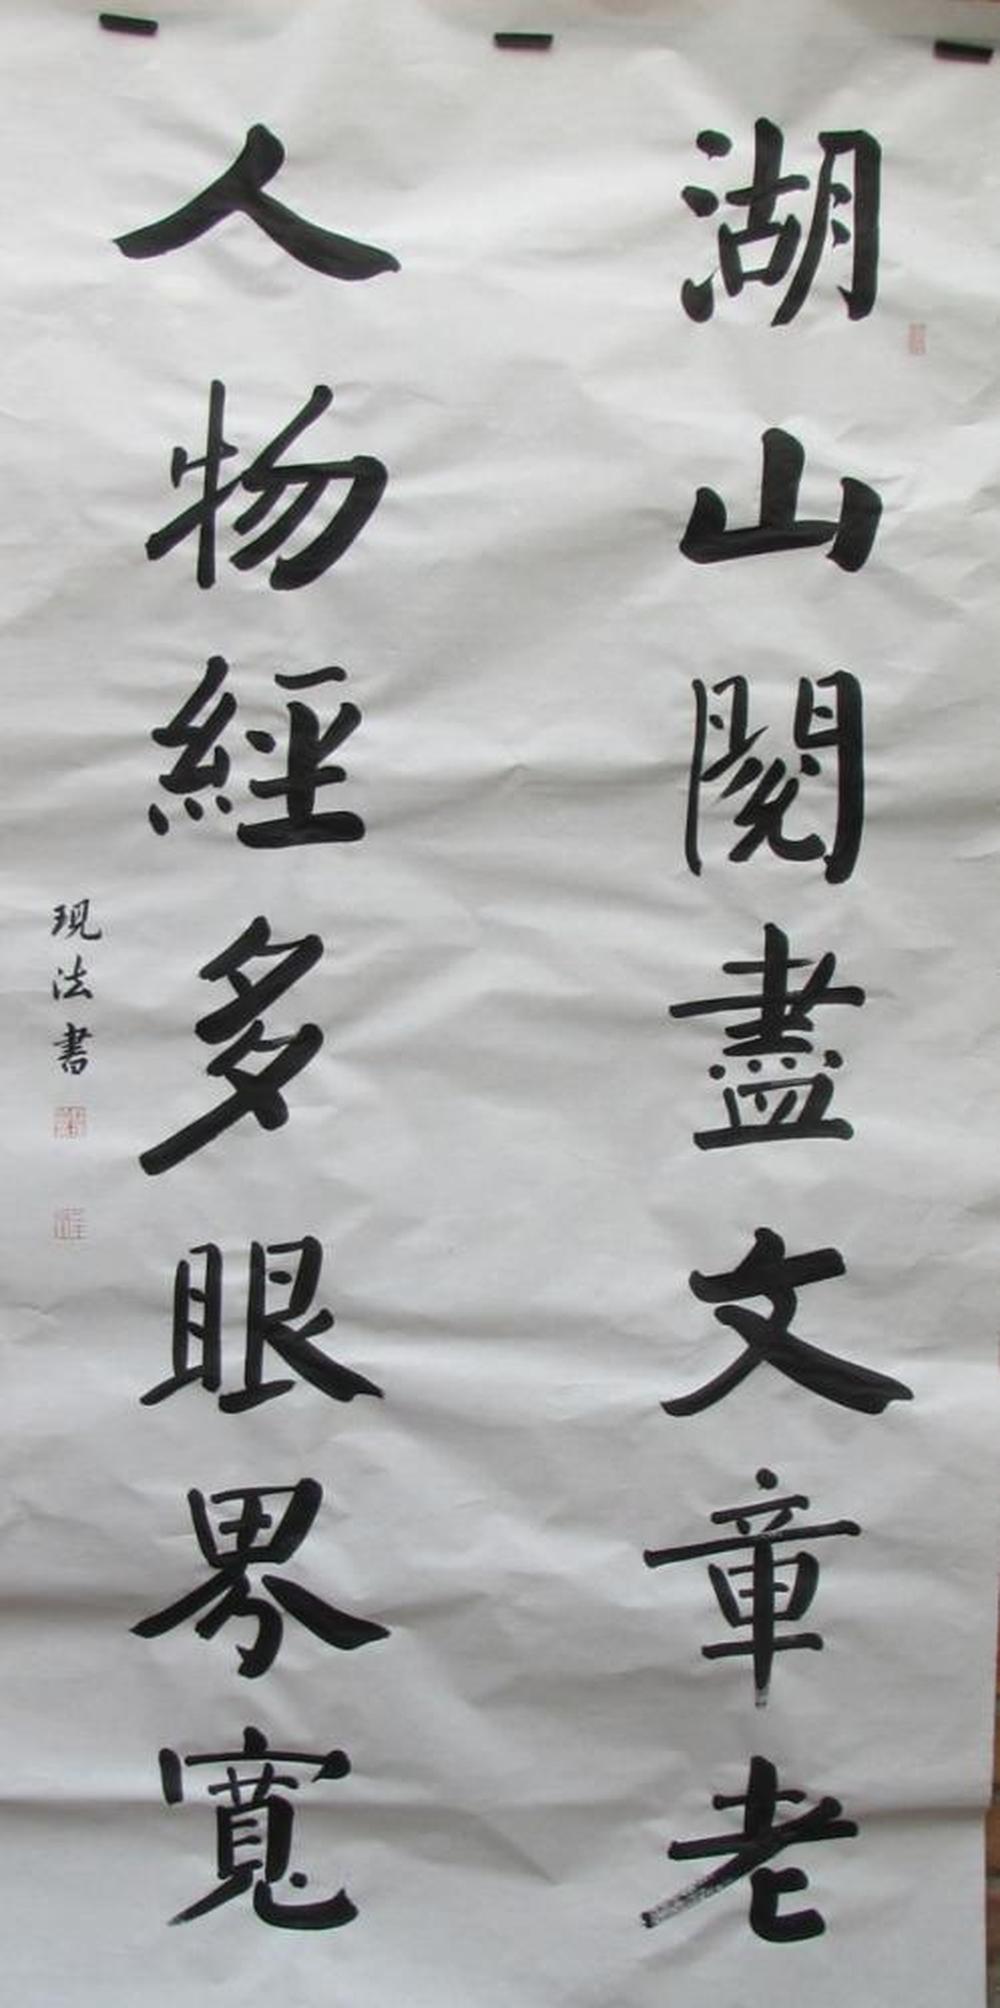 湖山閱盡文章老
人物經多眼界寬
現法書